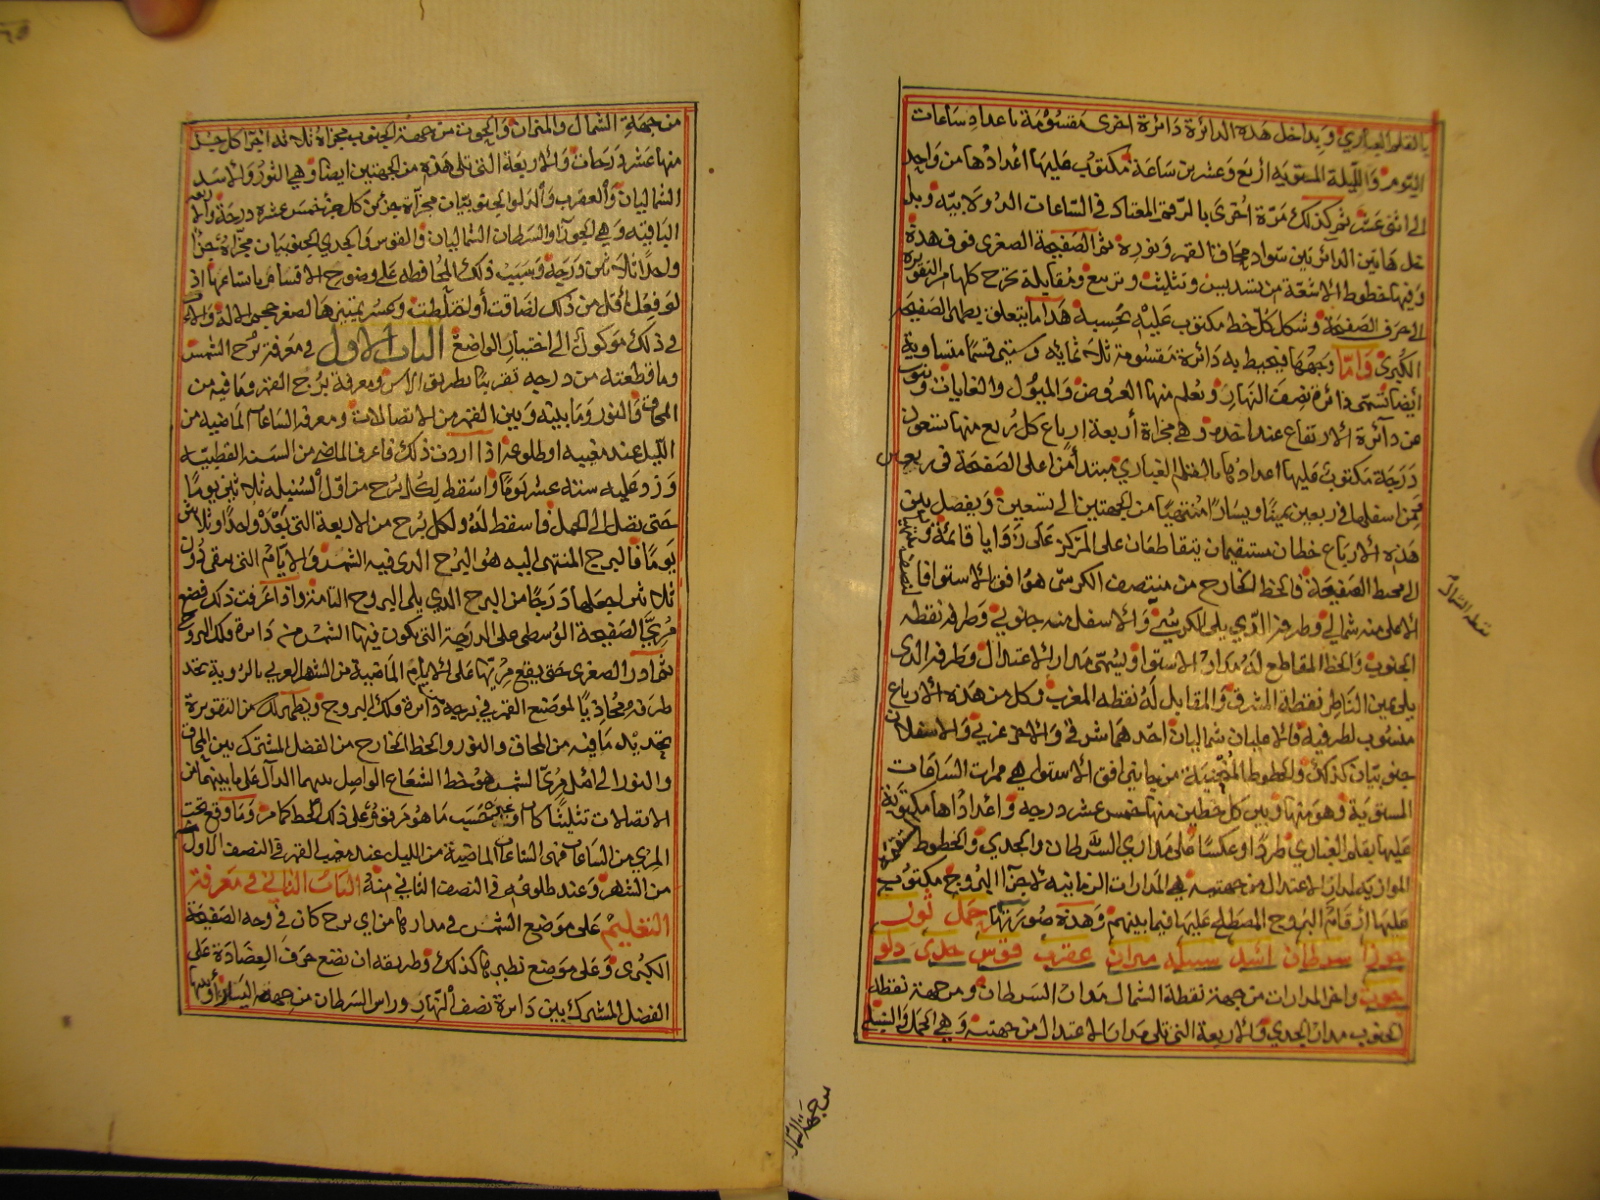 بالقلم الغباري وبداخل هذه الدائرة دائرة اخرى مقسومة باعداد ساعات
اليوم والليلة المستوية اربع وعشرين ساعة مكتوب عليها اعدادها من واحد
الى اثنى عشر ثم كذلك مرة اخرى بالرقم المعتاد في الساعات الدولابيه
هاتين الدائرتين سواد محاق القمر ونوره ثم الصفيحة الصغرى فوق هذة
وفيها خطوط الاشعة من تسديس وتثليث وتربيع ومقابلة تخرج كلها من التقويرة
الى حرف الصفيحة وشكل كل خط مكتوب عليه بحسبه هذا ما يتعلق بظهر الصفيحة
الكبرى واما وجهها فيحيط به دائرة مقسومة ثلاثمائه وستين قسما متساوية
ايضا تسمى دائرة نصف النهار ويعلم منها العروض والميول والغايات وتنوب
عن دائرة الارتفاع عند اخده وهي مجزاة أربعة ارباع كل ربع منها تسعون
درجة مكتوب عليها اعدادها بالقلم الغباري مبتدأ من اعلى الصفحة في ربعين
ومن اسفلها في ربعين يمينا ويسارا منتهيا من الجهتين الى تسعين ويفصل بين
هذه الارباع خطان مستقيمان يتقاطعان على المركز على زوايا قائمة
الى محيط الصفيحة فالخط الخارج من منتصف الكرسى هو افق الاستوا
الاعلى منه شمالي وطرفه الذي يلى الكرسي والاسفل منه جنوبي وطرفه نقطه
الجنوب والخط المقاطع له مدار الاستوا ويسمى مدار الاعتدال وطرفه الذى
يلى يمين الناظر نقطة المشرق والمقابل له نقطه المغرب وكل من هذه الارباع
منسوب لطرفيه فالاعليان شماليان احدهما شرقي والاخر غربي والاسفلان
جنوبيان كذلك والخطوط المنحنية من جانبي افق الاستوا هي ممرات الساعات
المستوية وهو منها وبين كل خطين منها خمس عشر درجه واعدادها مكتوبة
عليها بقلم الغباري طردا وعكسا على مداري السرطان والجدي والخطوط
الموازية لمدار الاعتدال من جهتيه هي المدارات الزمانيه لاجزا البروج مكتوب
عليها ارقام البروج المصطلح عليها فيما بينهم وهذه صورتها حمل ثور
جوزا سرطان اسد سنبله ميزان عقرب قوس جدى دلو
حوت واخر المدارات من جهة نقطة الشمال مدار السرطان ومن جهة نقطة
الجنوب مدار الجدي والاربعة التى تلى مدار الاعتدال من جهتيه وهي الحمل والسنبلة
نقطه الشمال
من جهة الشمال
من جهة الشمال والميزان والحوت من جهة الجنوب مجزاة ثلاثة اجزا كل جزء
منها عشر درجات والاربعة التى تلى هذه من الجهتين ايضا وهي الثور والاسد
الشماليان والعقرب والدلو الجنوبيان مجزأة جزئين كل جزء خمس عشره درجة والاربعه
الباقية وهي الجوزا والسرطان الشماليان والقوس والجدي الجنوبيان مجزاة جزأ
واحدا ثلاثين درجة وسبب ذلك المحافظه على وضوح الاقسام باتساعها اذ
لو فعل اقل من ذلك لضاقت أو اختلطت وعسر تمييزها لصغر حجم الالة والامر
في ذلك موكول الى اختيار الواضع الباب الاول في معرفة برج الشمس
وما قطعته من درجه تقريبا بطريق الاس ومعرفة برج القمر وما فيه من
المحاق والنور وما بينه وبين الشمس من الاتصالات ومعرفة الساعات الماضيه من
الليل عند مغيبه او طلوعه اذا اردت ذلك فاعرف الماضي من السنه القبطيه
وزد عليه سته عشر يوما واسقط لكل برج من اول السنبله ثلاثين يوما
حتى تصل الى الحمل فاسقط له ولكل برج من الاربعة التى بعده واحدا وثلاثين
يوما فالبرج المنتهى اليه هو البرج الذى فيه الشمس والايام التى يبقى دون
ثلاثين اجعلها درجا من البرج الذي يلى البروج التامة واذا عرفت ذلك فضع
مري الصفيحة الوسطى على الدرجة التى تكون فيها الشمس من دائرة فلك البروج
ثم ادر الصغرى حتى يقع مريها على الايام الماضية من الشهر العربي بالروية تجد
طرفه محاذيا لموضع القمر في درجه دائرة فلك البروج ويظهر لك من التقويرة
تحديد ما فيه من المحاق والنور والخط الخارج من الفصل المشترك بين المحاق
والنور الى مري الشمس هو خط الشعاع الواصل بينهما الدال على ما بينهما من
الاتصالات تثليثا كان او غيره بحسب ما هو مرقوم على ذلك الخط كما مر وما وقع تحت
المري من الساعات فهى الساعات الماضية من الليل عند مغيب القمر في النصف الاول
من الشهر وعند طلوعه في النصف الثاني منه الباب الثاني في معرفة
التعليم على موضع الشمس في مدارها من اي برج كان في وجه الصفيحة
الكبرى وعلى موضع نظيرها كذلك وطريقه ان تضع حرف العضادة على
الفصل المشترك بين دائرة نصف النهار وراس السرطان من جهة اليسار